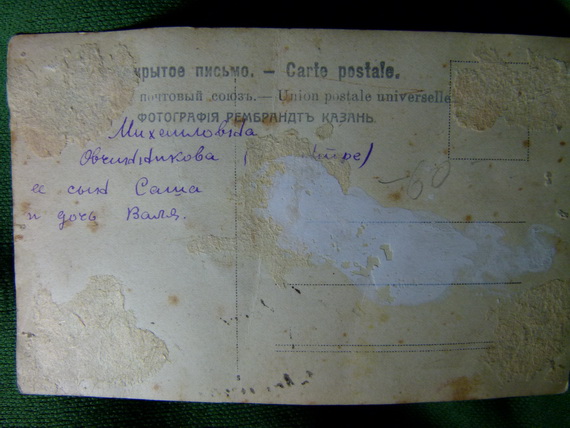 крытое письмо. — Carte postale.
почтовый союзъ. — Union postale universelle
ФОТОГРАФІЯ РЕМБРАНДТЪ КАЗАНЬ.
Михайловна
Овчинникова (
ее сын Саша
и дочь Валя.